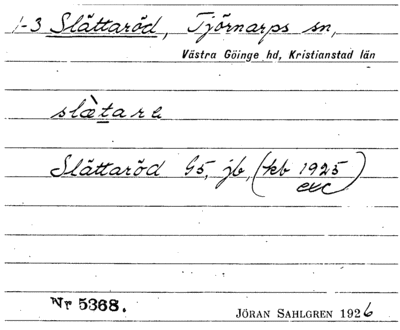 1-3 Slättaröd, Tjörnarps sn,
Västra Göinge hd, Kristianstad län
slæ̀tare
Slättaröd G5, jb, (kb 1925
exc)
Nr 5368.
JÖRAN SAHLGREN 1926